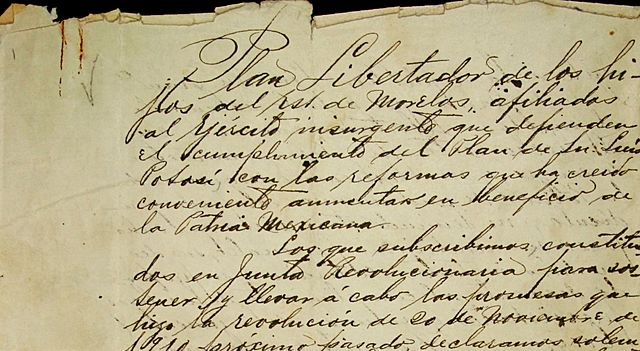 Plan Libertador de los hi-
jos del Est. de Morelos, afiliados
al Ejército insurgente que defienden
el cumplimiento del Plan de Sn Luis
Potosí con las reformas que ha creido
conveniente aumentar en beneficio de
la Patria Mexicana.
Los que subscribimos, constitui
dos en Junta Revolucionaria para sos
tener y llevar á cabo las promesas que
hizo la revolución de 20 de Noviembre de
1910 próximo pasado, declaramos solem